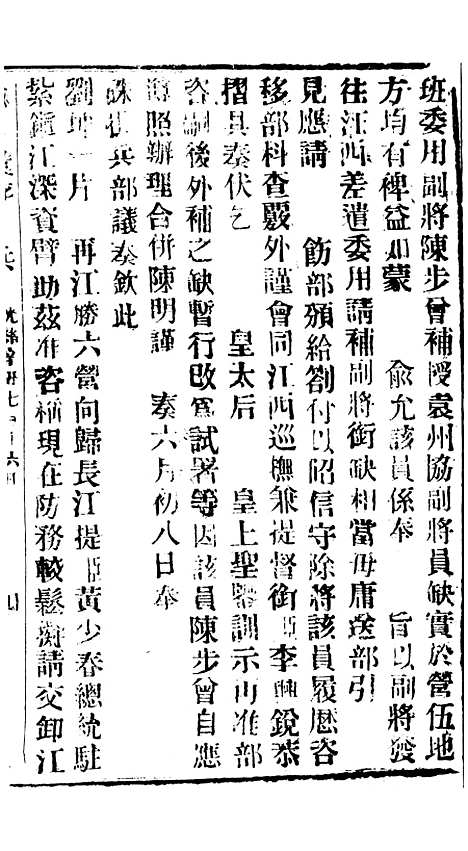 班委用副將陳步曾補授袁州協副將員缺實於營伍地
方均有裨益如蒙　俞允該員係奉　旨以副將發
往江西差遣委用請補副將銜缺相當毋庸送部引
見應請　飭部頒給劄付以昭信守除將該員履歷咨
移部科查覈外謹會同江西巡撫兼提督銜臣李興銳恭
摺具奏伏乞　皇太后　皇上聖鑒訓示再准部
咨嗣後外補之缺暫行改爲試署等因該員陳步曾自應
遵照辦理合併陳明謹　奏六月初八日奉
硃批兵部議奏欽此
劉坤一片　再江勝六營向歸長江提臣黃少春總統駐
紮鎮江深資臂助茲准咨稱現在防務較鬆擬請交卸江